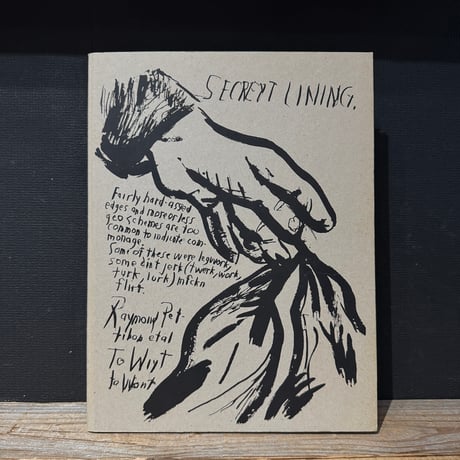 SECREYT LINING.
Fairly hard-assed
edges and more or less
geo schemes are too
common to indicate com-
monage.
Some of these were legwork,
some dint jerk (twerk, work,
turk, lurk) mfckn
flirt.
Raymond Pet-
tibon etal
To Wiyt
to Wont